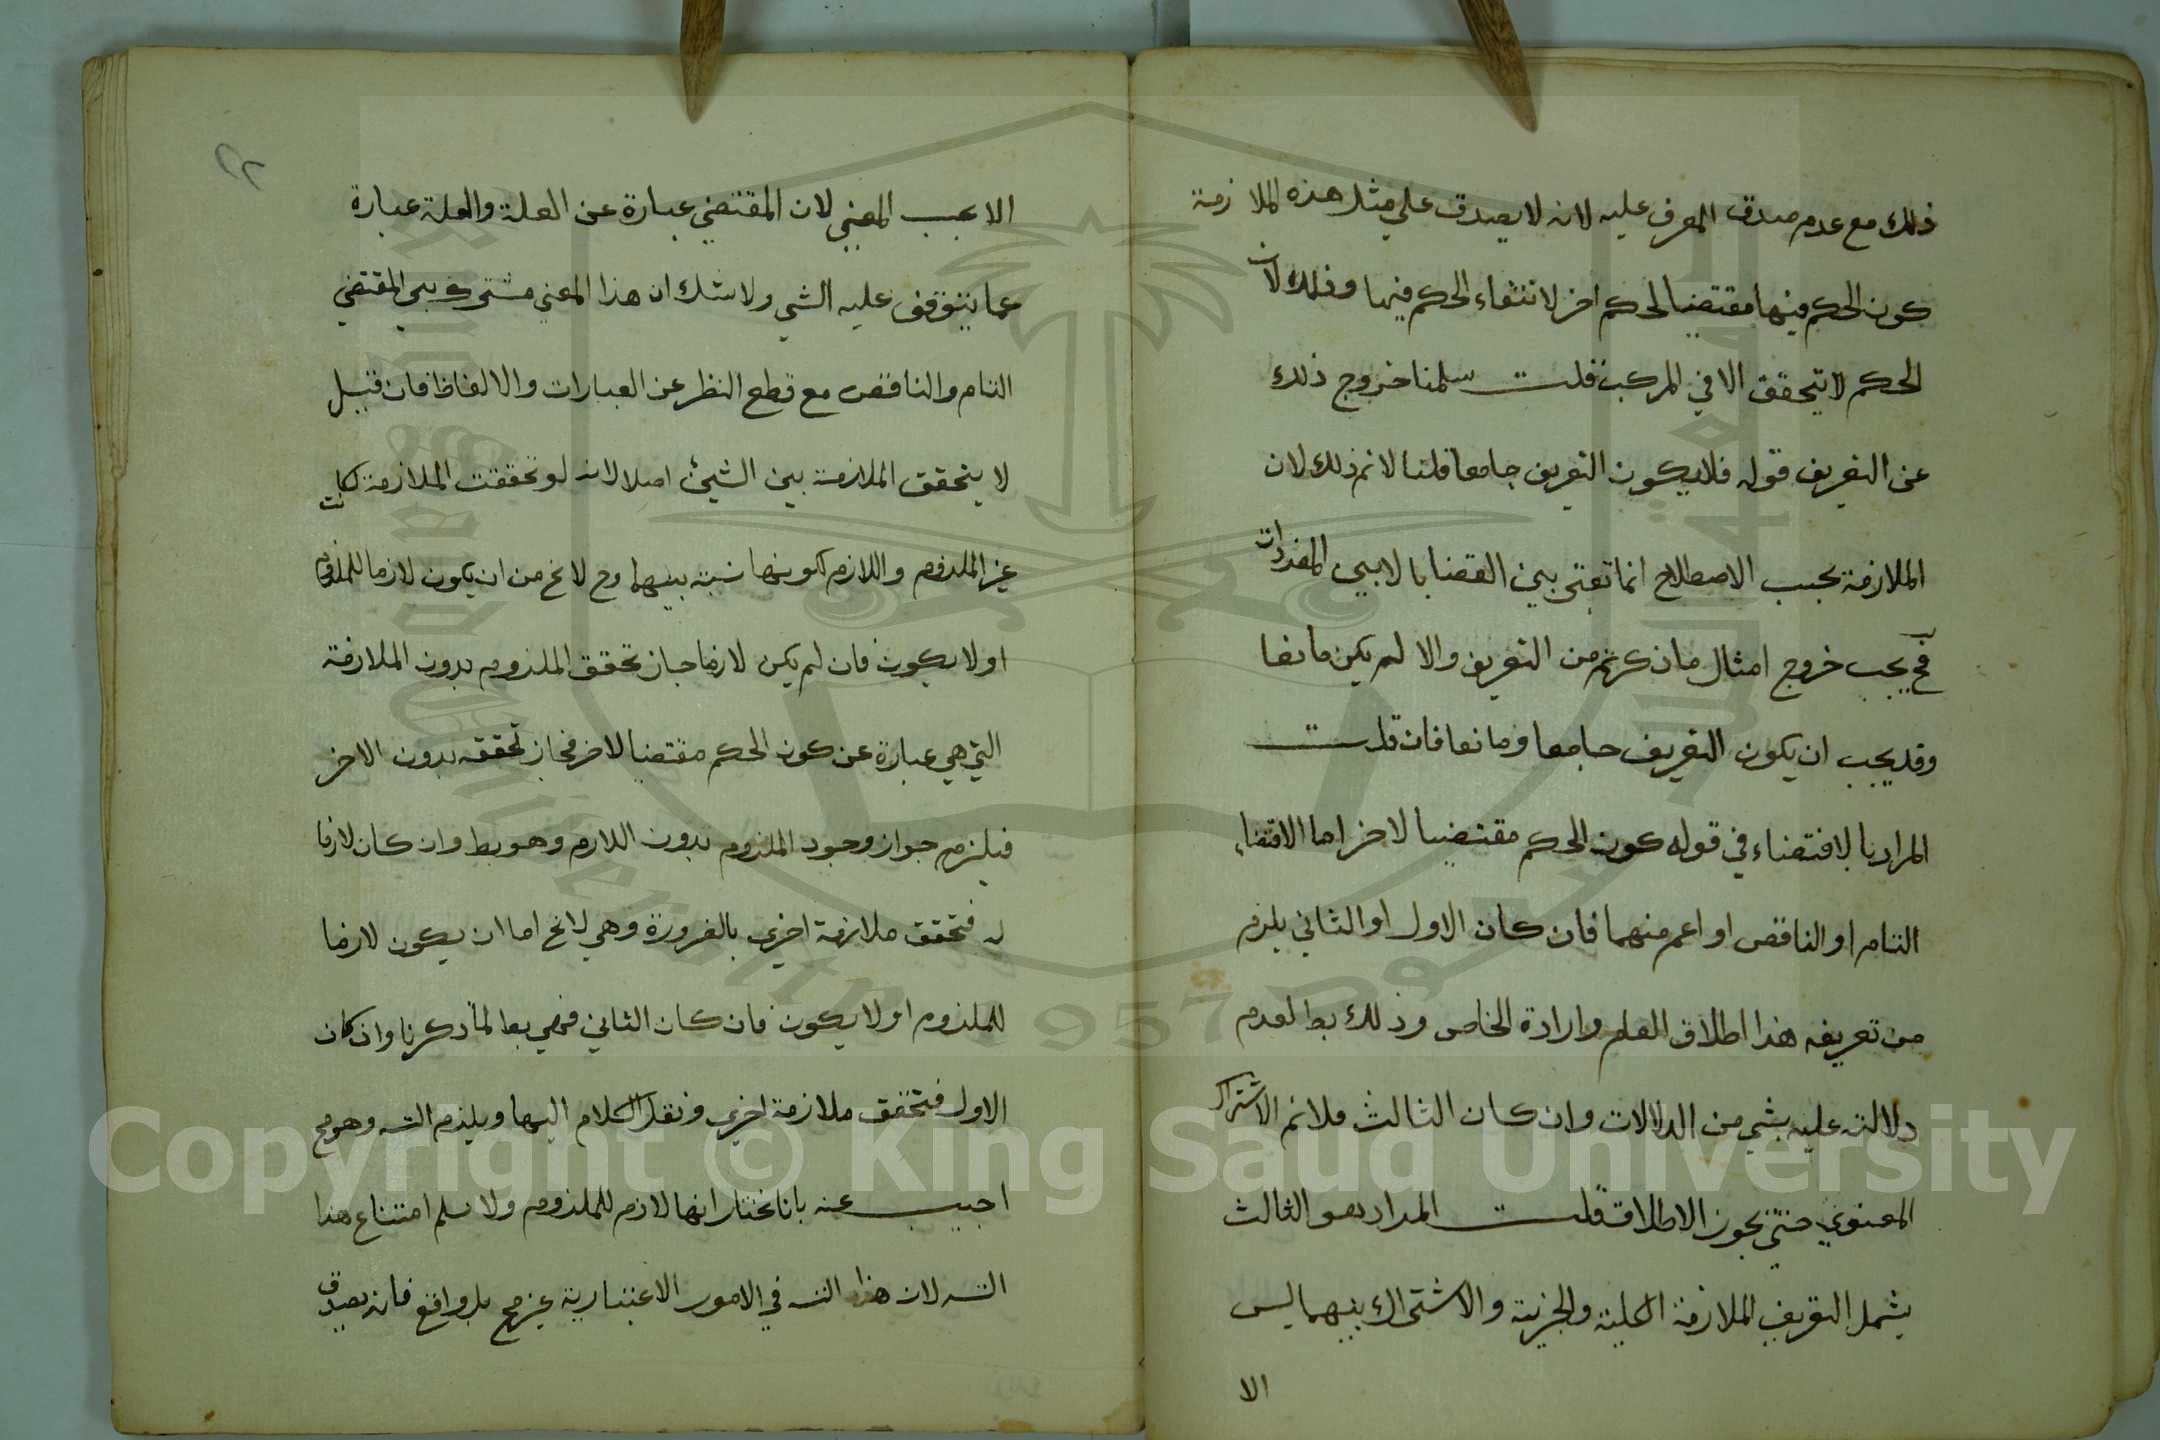 ذلك مع عدم صدق المعرف عليه لانه لا يصدق علي مثل هذه الملازمة
كون الحكم فيها مقتضيا لحكم اخر لانتفاء الحكم فيها وذلك لان
الحكم لا يتحقق الا في المركب فان قلت سلمنا خروج ذلك
عن التعريف قوله فلا يكون التعريف جامعا قلنا لا نم ذلك لان
الملازمة بحسب الاصطلاح انما تعتبر بين القضايا لا بين المفردات
فح يجب خروج امثال ما ذكرتم من التعريف والا لم يكن مانعا
وقد يجب ان يكون التعريف جامعا ومانعا فان قلت
المراد بالاقتضاء في قوله كون الحكم مقتضيا لاخر اما الاقتضاء
التام او الناقص او اعم منهما فان كان الاول او الثاني يلزم
من تعريفه هذا اطلاق العام وارادة الخاص وذلك بط لعدم
دلالته عليه بشي من الدلالات وان كان الثالث فلا نم الاشتراك
المعنوي حتي يجوز الاطلاق قلت المراد هو الثالث
يشمل التعريف الملازمة الكلية والجزية والاشتراك بينهما ليس
الا
٢٢
الا بحسب المعني لان المقتضي عبارة عن العلة والعلة عبارة
عما يتوقف عليه الشي ولا شك ان هذا المعني مشترك بين المقتضي
التام والناقص مع قطع النظر عن العبارات والالفاظ فان قيل
لا يتحقق الملازمة بين الشيئ اصلا لانه لو تحققت الملازمة لكانت
غير الملزوم واللازم لكونها نسبة بينهما وح لا يخ من ان يكون لازما للملزوم
او لا يكون فان لم يكن لازما جاز تحقق الملزوم بدون الملازمة
التي هي عبارة عن كون الحكم مقتضيا لاخر فجاز تحققه بدون الاخر
فيلزم جواز وجود الملزوم بدون اللازم وهو بط وان كان لازما
له فتحقق ملازمة اخري بالضرورة وهي لا يخ اما ان يكون لازما
للملزوم او لا يكون فان كان الثاني فهي بط لما ذكرنا وان كان
الاول فتحقق ملازمة اخري وننقل الكلام اليها ويلزم التسـ وهو مح
اجيب عنه بانا نختار انها لازم للملزوم ولا نسلم امتناع هذا
التسـ لان هذا التسـ في الامور الاعتبارية غير مح بل واقع فانه يصدق
Copyright © King Saud University